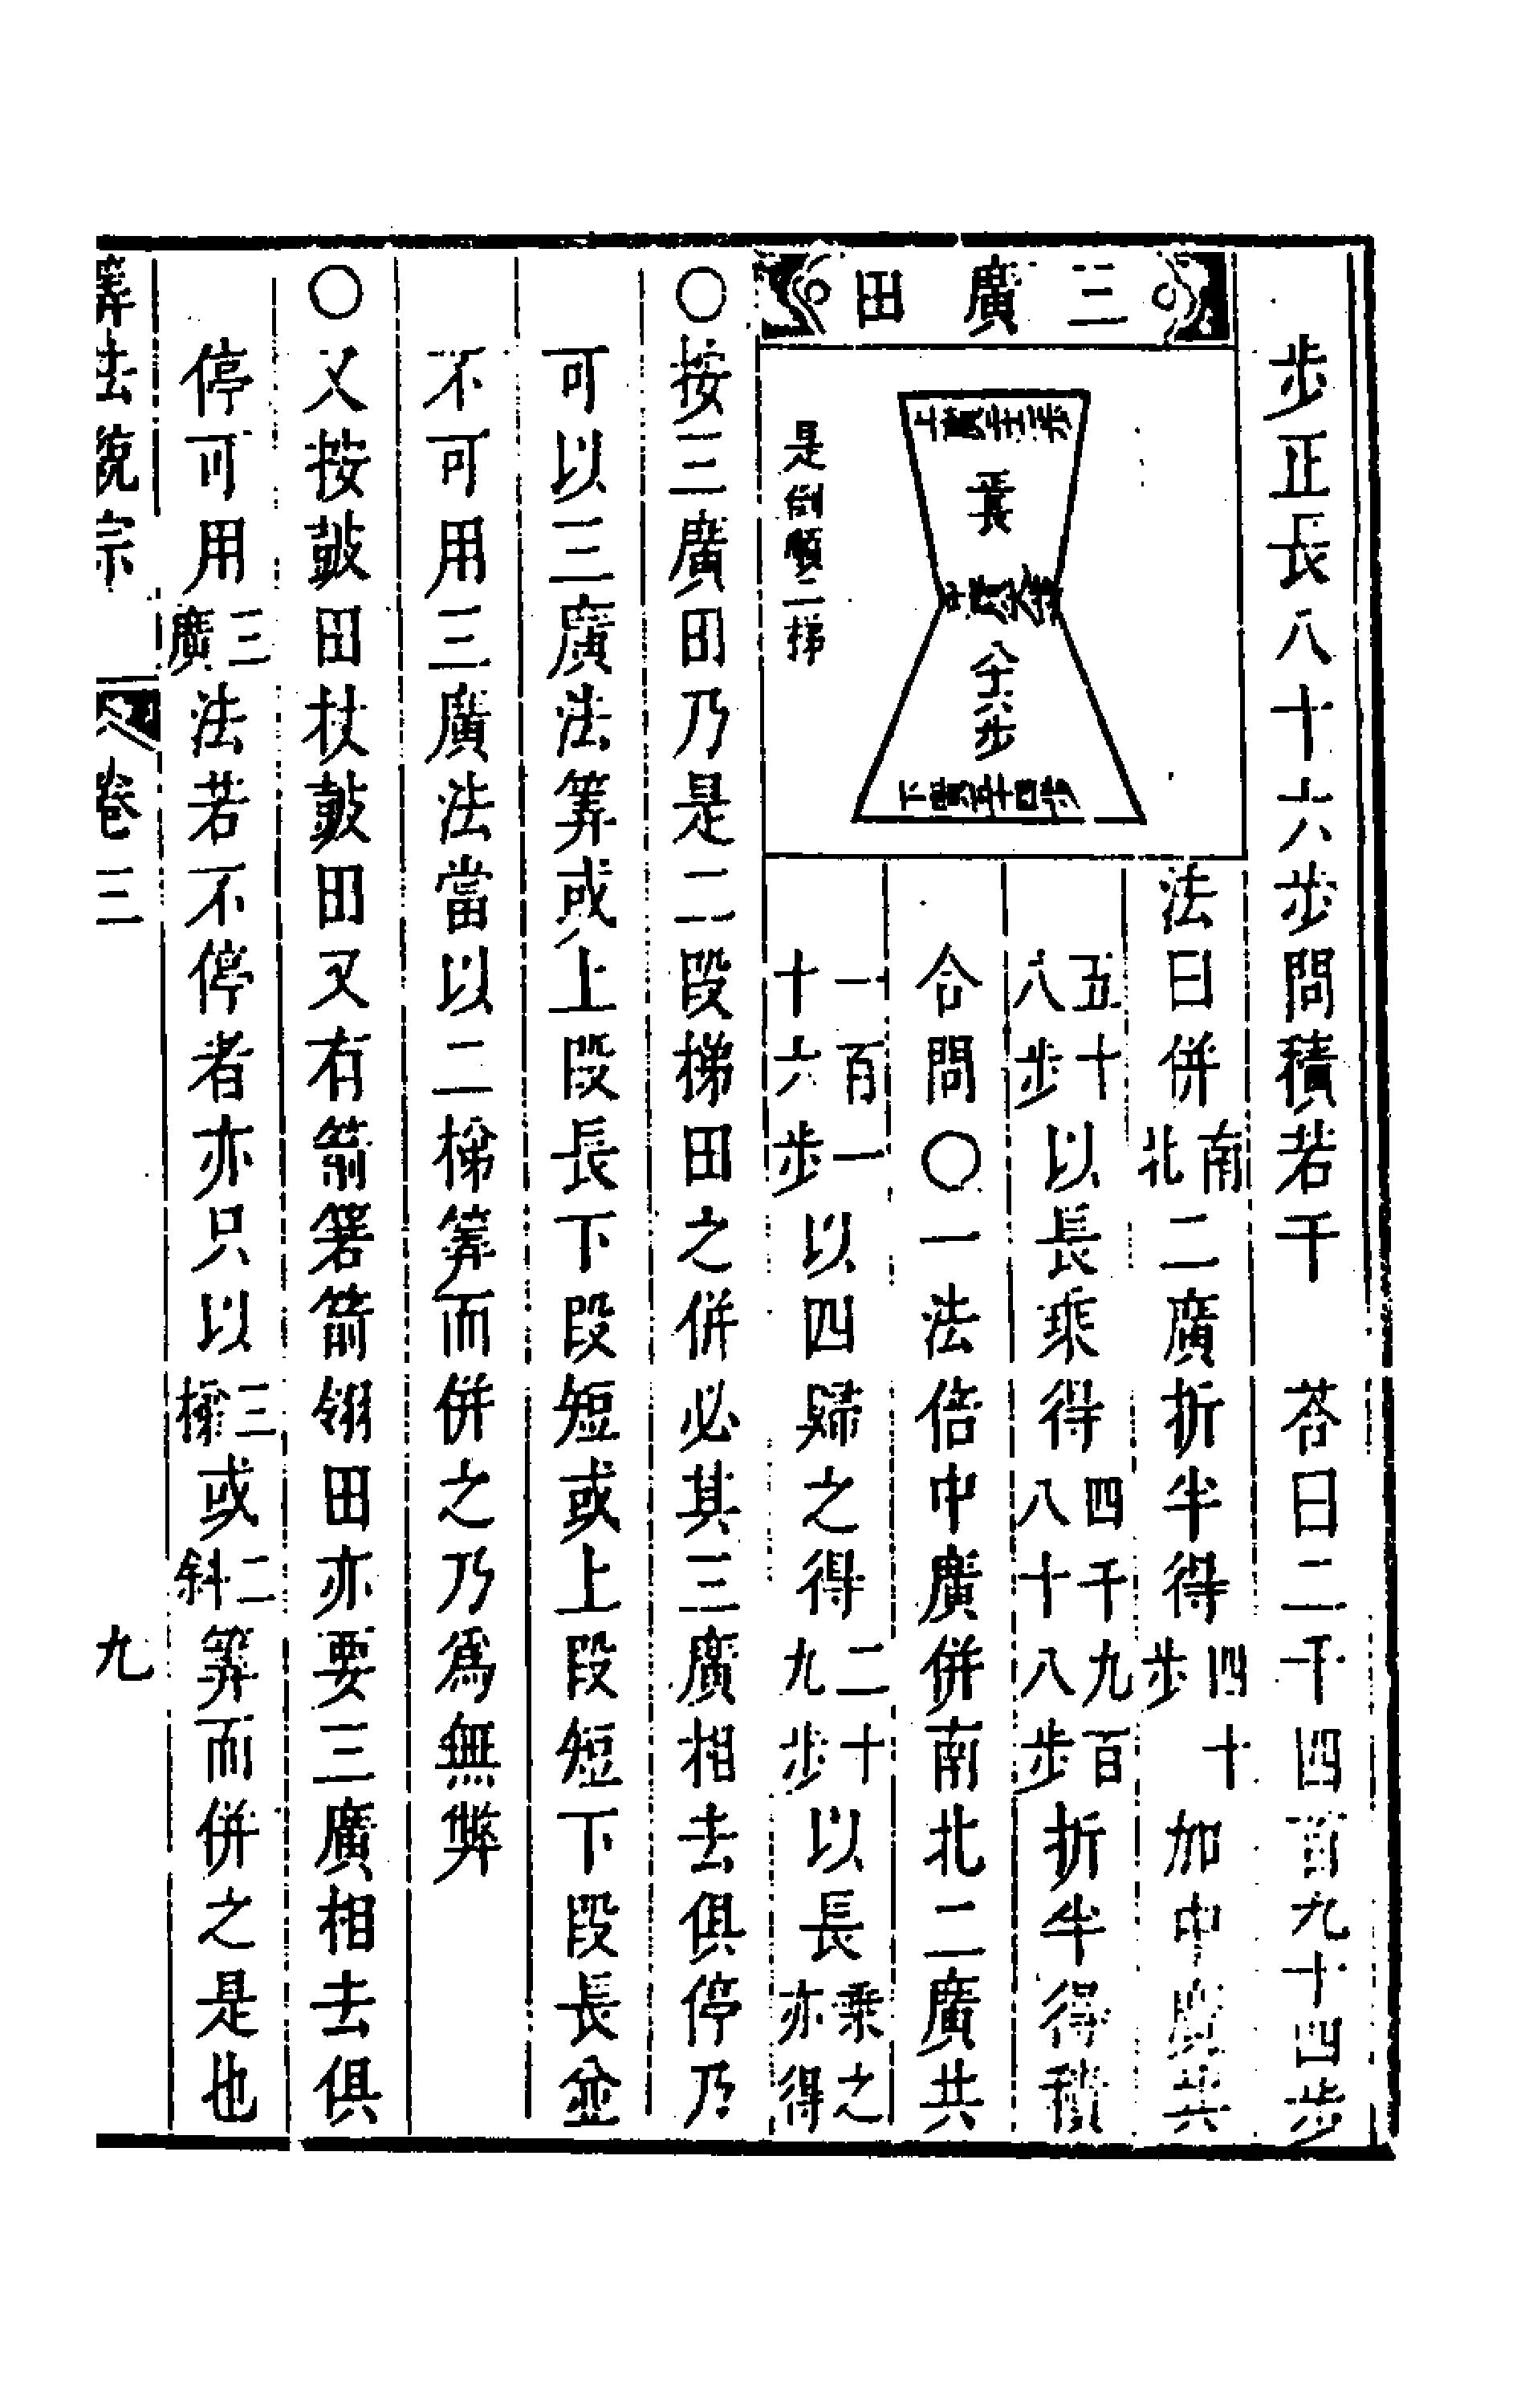 步正長八十六步問積若干　荅曰二千四百九十四步
三廣田
上廣二十六步
正長
中廣十八步
八十六步
下廣五十四步
是倒順二梯
法曰併南北二廣折半得四十步加中廣共
五十八步以長乘得四千九百八十八步折半得積
合問○一法倍中廣併南北二廣共
一百一十六步以四歸之得二十九步以長乘之亦得
○按三廣田乃是二段梯田之併必其三廣相去俱停乃
可以三廣法筭或上段長下段短或上段短下段長並
不可用三廣法當以二梯筭而併之乃爲無弊
○又按鼓田杖鼓田又有箭筈箭翎田亦要三廣相去俱
停可用三廣法若不停者亦只以三梯或二斜筭而併之是也
筭法統宗　卷三　九